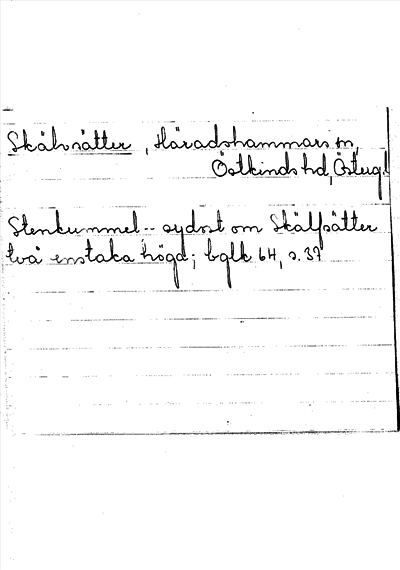 Skälvsätter, Häradshammars sn,
Östkinds hd, Östergl
Stenkummel -- sydost om Skälfsätter
två enstaka högd; bglk 64, s. 37